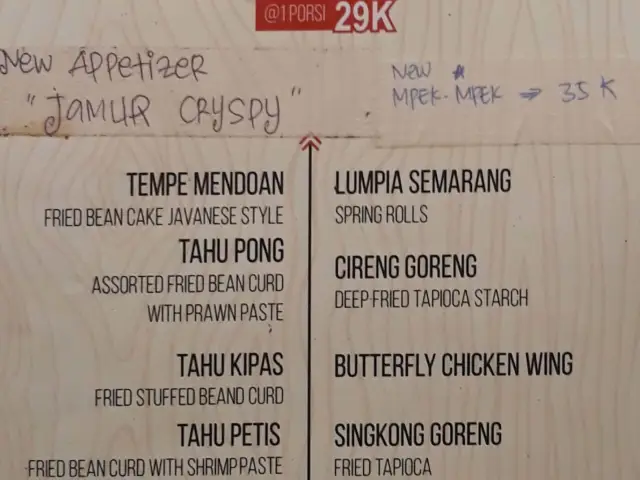 @1 PORSI 29K
New Appetizer
"JAMUR CRYSPY"
NEW
MPEK-MPEK → 35 K
TEMPE MENDOAN
FRIED BEAN CAKE JAVANESE STYLE
TAHU PONG
ASSORTED FRIED BEAN CURD
WITH PRAWN PASTE
TAHU KIPAS
FRIED STUFFED BEAND CURD
TAHU PETIS
FRIED BEAN CURD WITH SHRIMPPASTE
LUMPIA SEMARANG
SPRING ROLLS
CIRENG GORENG
DEEP FRIED TAPIOCA STARCH
BUTTERFLY CHICKEN WING
SINGKONG GORENG
FRIED TAPIOCA